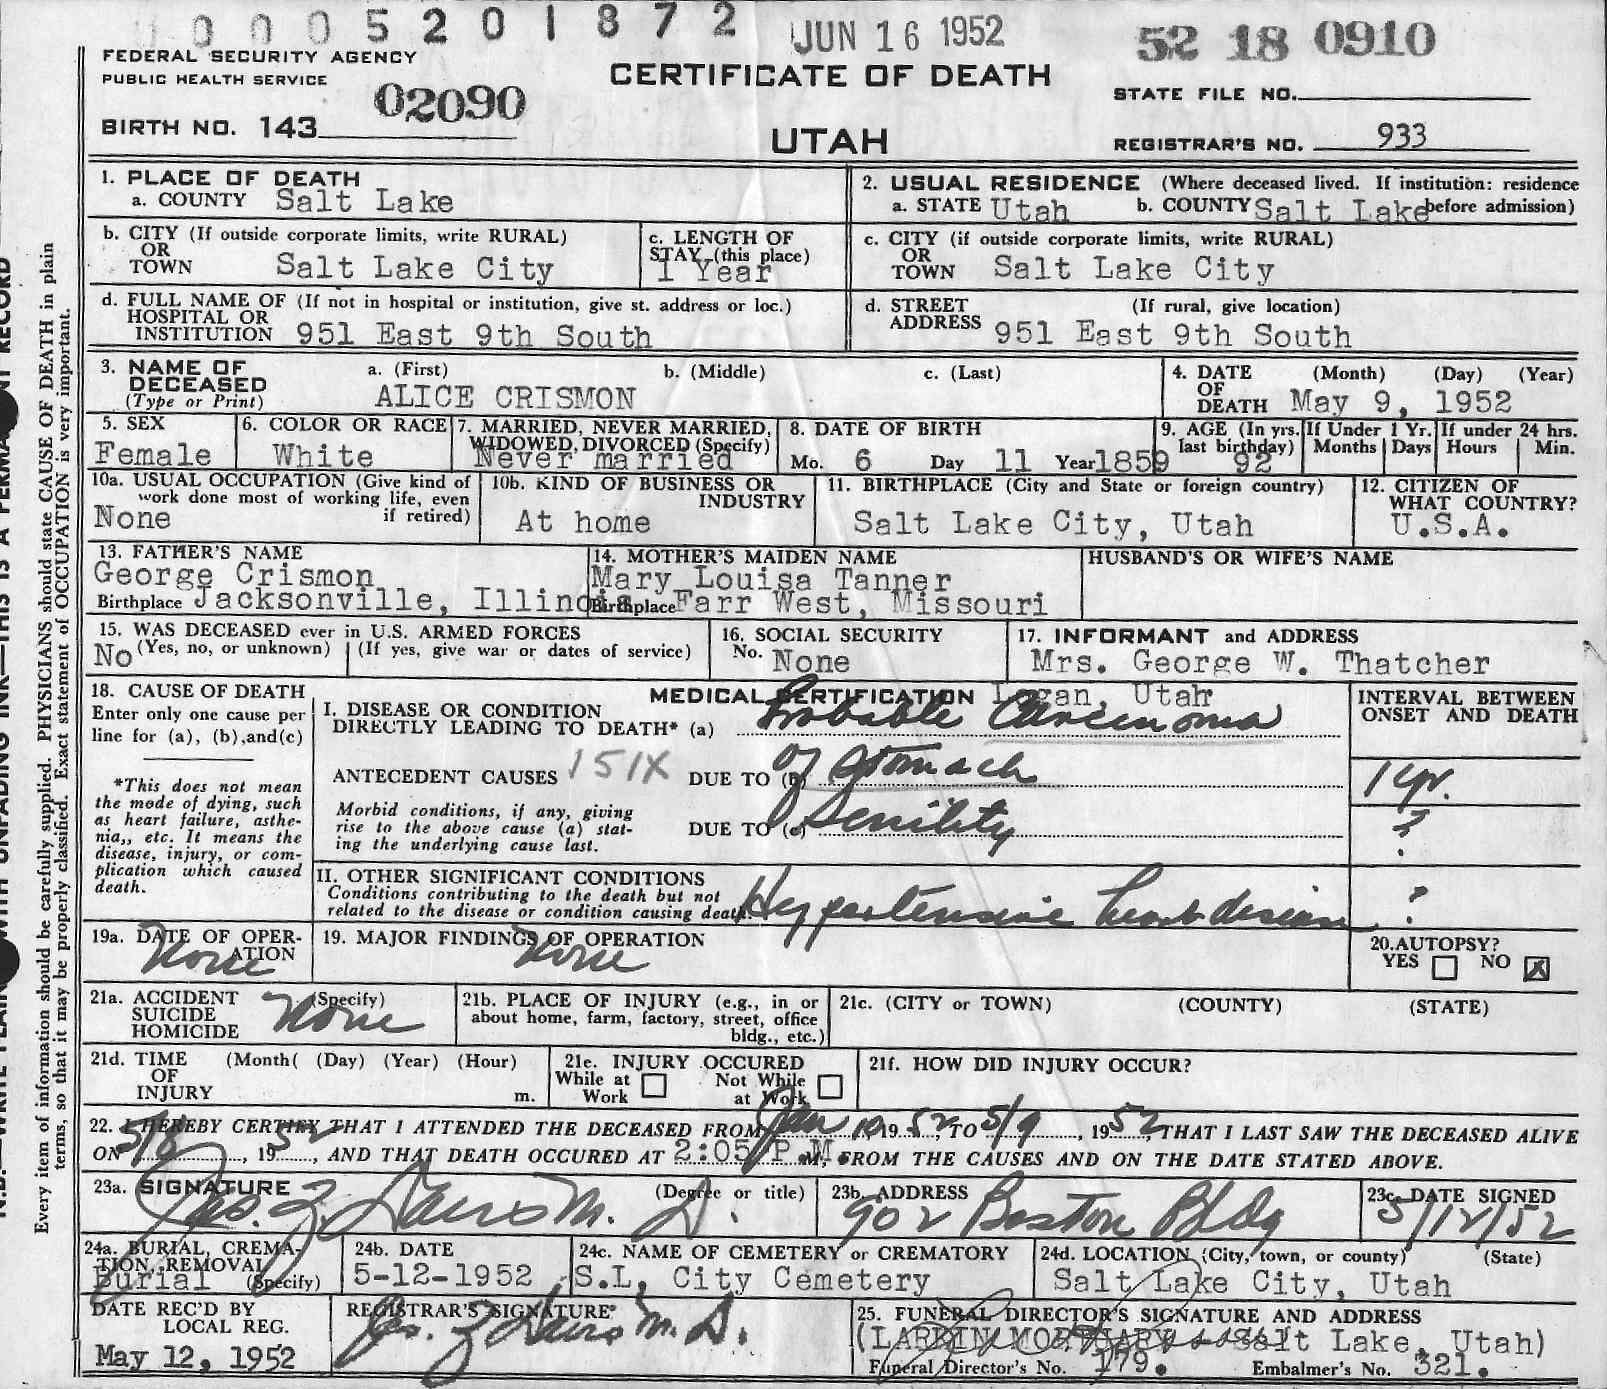 0005201872 JUN 16 1952 52 18 0910
FEDERAL SECURITY AGENCY
PUBLIC HEALTH SERVICE
CERTIFICATE OF DEATH
02090
STATE FILE NO.
BIRTH NO. 143
UTAH
REGISTRAR'S NO. 933
1. PLACE OF DEATH
a. COUNTY Salt Lake
2. USUAL RESIDENCE (Where deceased lived. If institution: residence before admission)
a. STATE Utah b. COUNTY Salt Lake
b. CITY (If outside corporate limits, write RURAL)
OR
TOWN Salt Lake City
c. LENGTH OF
STAY (this place)
1 Year
c. CITY (if outside corporate limits, write RURAL)
OR
TOWN Salt Lake City
d. FULL NAME OF (If not in hospital or institution, give st. address or loc.)
HOSPITAL OR
INSTITUTION 951 East 9th South
d. STREET (If rural, give location)
ADDRESS 951 East 9th South
3. NAME OF a. (First) b. (Middle) c. (Last)
DECEASED
(Type or Print) ALICE CRISMON
4. DATE (Month) (Day) (Year)
OF
DEATH May 9, 1952
5. SEX
Female
6. COLOR OR RACE
White
7. MARRIED, NEVER MARRIED,
WIDOWED, DIVORCED (Specify)
Never married
8. DATE OF BIRTH
Mo. 6 Day 11 Year 1859
9. AGE (In yrs.
last birthday)
92
If Under 1 Yr.
Months Days
If under 24 hrs.
Hours Min.
10a. USUAL OCCUPATION (Give kind of
work done most of working life, even
if retired)
None
10b. KIND OF BUSINESS OR
INDUSTRY
At home
11. BIRTHPLACE (City and State or foreign country)
Salt Lake City, Utah
12. CITIZEN OF
WHAT COUNTRY?
U.S.A.
13. FATHER'S NAME
George Crismon
Birthplace Jacksonville, Illinois
14. MOTHER'S MAIDEN NAME
Mary Louisa Tanner
Birthplace Farr West, Missouri
HUSBAND'S OR WIFE'S NAME
15. WAS DECEASED ever in U.S. ARMED FORCES
No (Yes, no, or unknown) (If yes, give war or dates of service)
16. SOCIAL SECURITY
No. None
17. INFORMANT and ADDRESS
Mrs. George W. Thatcher
Logan, Utah
18. CAUSE OF DEATH
Enter only one cause per
line for (a), (b),and(c)
*This does not mean
the mode of dying, such
as heart failure, asthe-
nia,, etc. It means the
disease, injury, or com-
plication which caused
death.
MEDICAL CERTIFICATION
I. DISEASE OR CONDITION
DIRECTLY LEADING TO DEATH* (a) Probable Carcinoma
ANTECEDENT CAUSES 151X DUE TO (b) of Stomach
Morbid conditions, if any, giving
rise to the above cause (a) stat-
ing the underlying cause last.
DUE TO (c) Senility
INTERVAL BETWEEN
ONSET AND DEATH
1 yr.
?
II. OTHER SIGNIFICANT CONDITIONS
Conditions contributing to the death but not
related to the disease or condition causing death.
Hypertensive heart disease ?
19a. DATE OF OPER-
ATION
None
19. MAJOR FINDINGS OF OPERATION
None
20. AUTOPSY?
YES ☐ NO ☒
21a. ACCIDENT (Specify)
SUICIDE
HOMICIDE
None
21b. PLACE OF INJURY (e.g., in or
about home, farm, factory, street, office
bldg., etc.)
21c. (CITY or TOWN) (COUNTY) (STATE)
21d. TIME (Month( (Day) (Year) (Hour)
OF
INJURY m.
21e. INJURY OCCURED
While at ☐ Not While ☐
Work at Work
21f. HOW DID INJURY OCCUR?
22. I HEREBY CERTIFY THAT I ATTENDED THE DECEASED FROM Jan 10 1952, TO 5/9, 1952, THAT I LAST SAW THE DECEASED ALIVE
ON 5/8, 1952, AND THAT DEATH OCCURED AT 2:05 P.M., FROM THE CAUSES AND ON THE DATE STATED ABOVE.
23a. SIGNATURE (Degree or title)
M. D.
23b. ADDRESS
902 Boston Bldg
23c. DATE SIGNED
5/12/52
24a. BURIAL, CREMA-
TION, REMOVAL
Burial (Specify)
24b. DATE
5-12-1952
24c. NAME OF CEMETERY or CREMATORY
S.L. City Cemetery
24d. LOCATION (City, town, or county) (State)
Salt Lake City, Utah
DATE REC'D BY
LOCAL REG.
May 12, 1952
REGISTRAR'S SIGNATURE
M. D.
25. FUNERAL DIRECTOR'S SIGNATURE AND ADDRESS
(LARKIN MORTUARY Salt Lake, Utah)
Funeral Director's No. 179. Embalmer's No. 321.
Every item of information should be carefully supplied. PHYSICIANS should state CAUSE OF DEATH in plain
terms, so that it may be properly classified. Exact statement of OCCUPATION is very important.